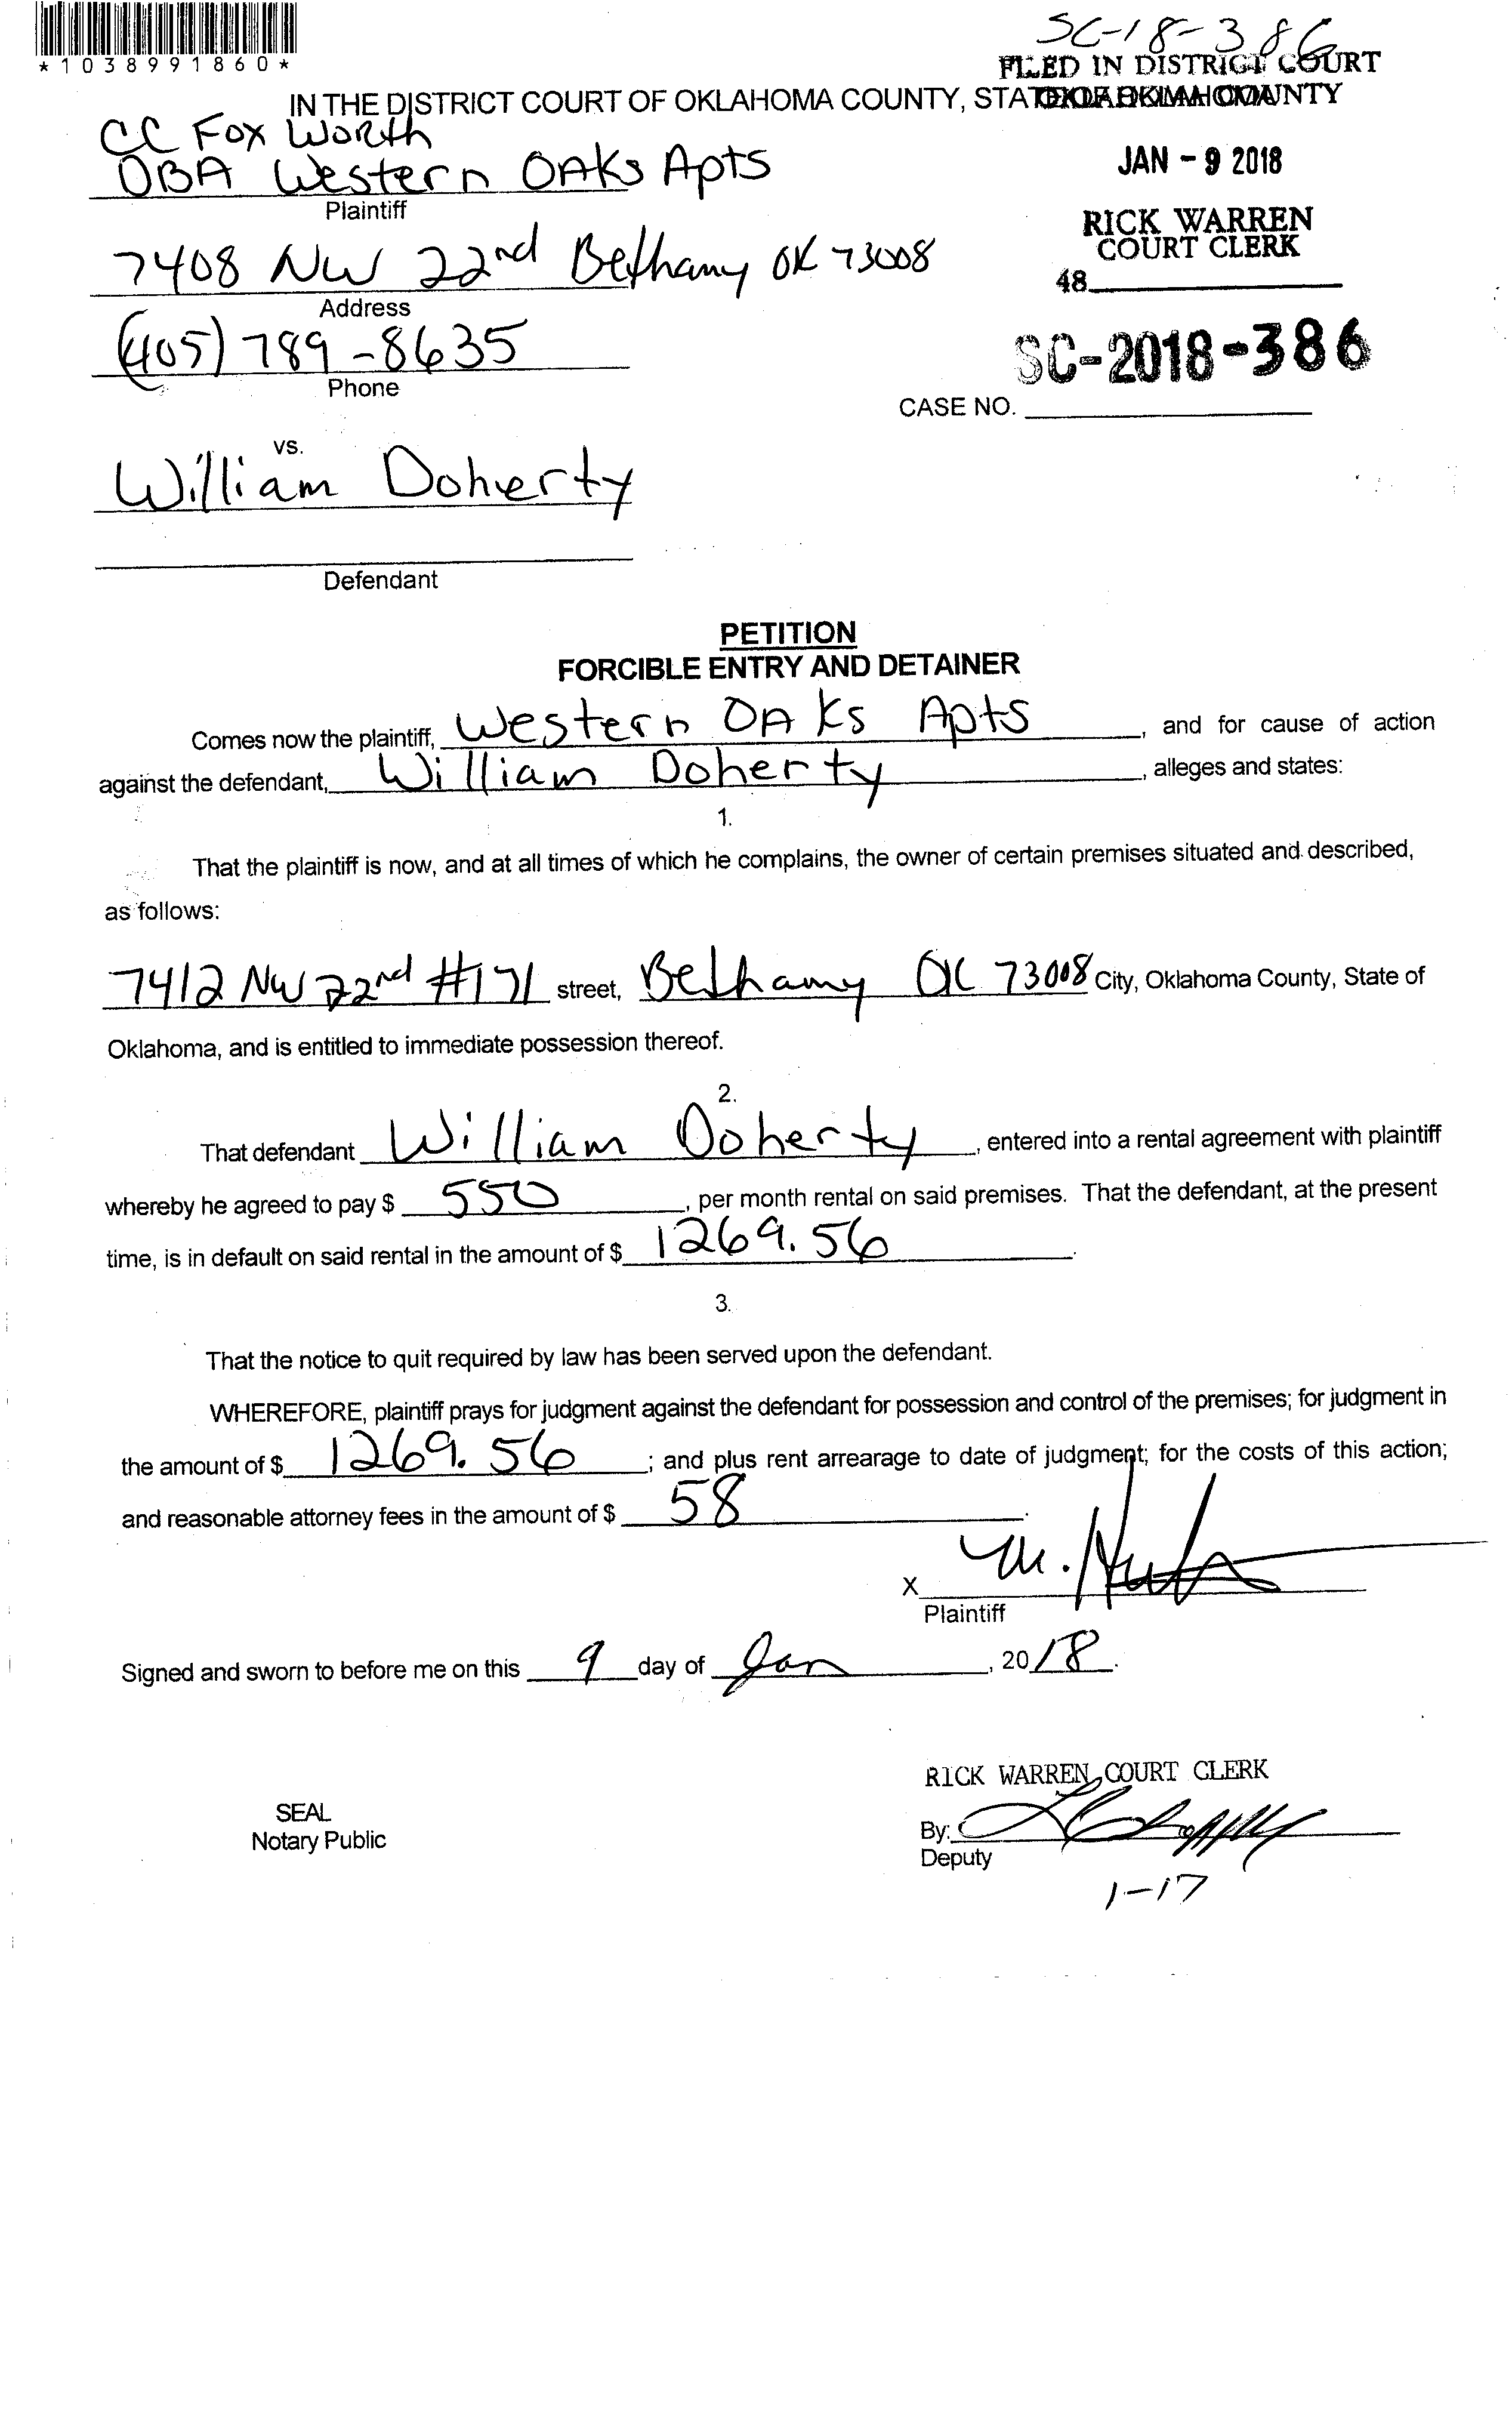 *1038991860*
SC-18-386
FILED IN DISTRICT COURT
IN THE DISTRICT COURT OF OKLAHOMA COUNTY, STATE OF OKLAHOMA
OKLAHOMA COUNTY
CC Fox Worth
DBA Western OAKs Apts
JAN - 9 2018
Plaintiff
RICK WARREN
COURT CLERK
7408 NW 22nd Bethany OK 73008
48
Address
(405) 789-8635
SC-2018-386
Phone
CASE NO.
vs.
William Doherty
Defendant
PETITION
FORCIBLE ENTRY AND DETAINER
Comes now the plaintiff, Western OAKs Apts, and for cause of action
against the defendant, William Doherty, alleges and states:
1.
That the plaintiff is now, and at all times of which he complains, the owner of certain premises situated and described,
as follows:
7412 NW 22nd #171 street, Bethany OK 73008 City, Oklahoma County, State of
Oklahoma, and is entitled to immediate possession thereof.
2.
That defendant William Doherty, entered into a rental agreement with plaintiff
whereby he agreed to pay $ 550, per month rental on said premises. That the defendant, at the present
time, is in default on said rental in the amount of $ 1269.56.
3.
That the notice to quit required by law has been served upon the defendant.
WHEREFORE, plaintiff prays for judgment against the defendant for possession and control of the premises; for judgment in
the amount of $ 1269.56; and plus rent arrearage to date of judgment; for the costs of this action;
and reasonable attorney fees in the amount of $ 58.
X
Plaintiff
Signed and sworn to before me on this 9 day of Jan, 2018.
RICK WARREN, COURT CLERK
SEAL
Notary Public
By:
Deputy
1-17